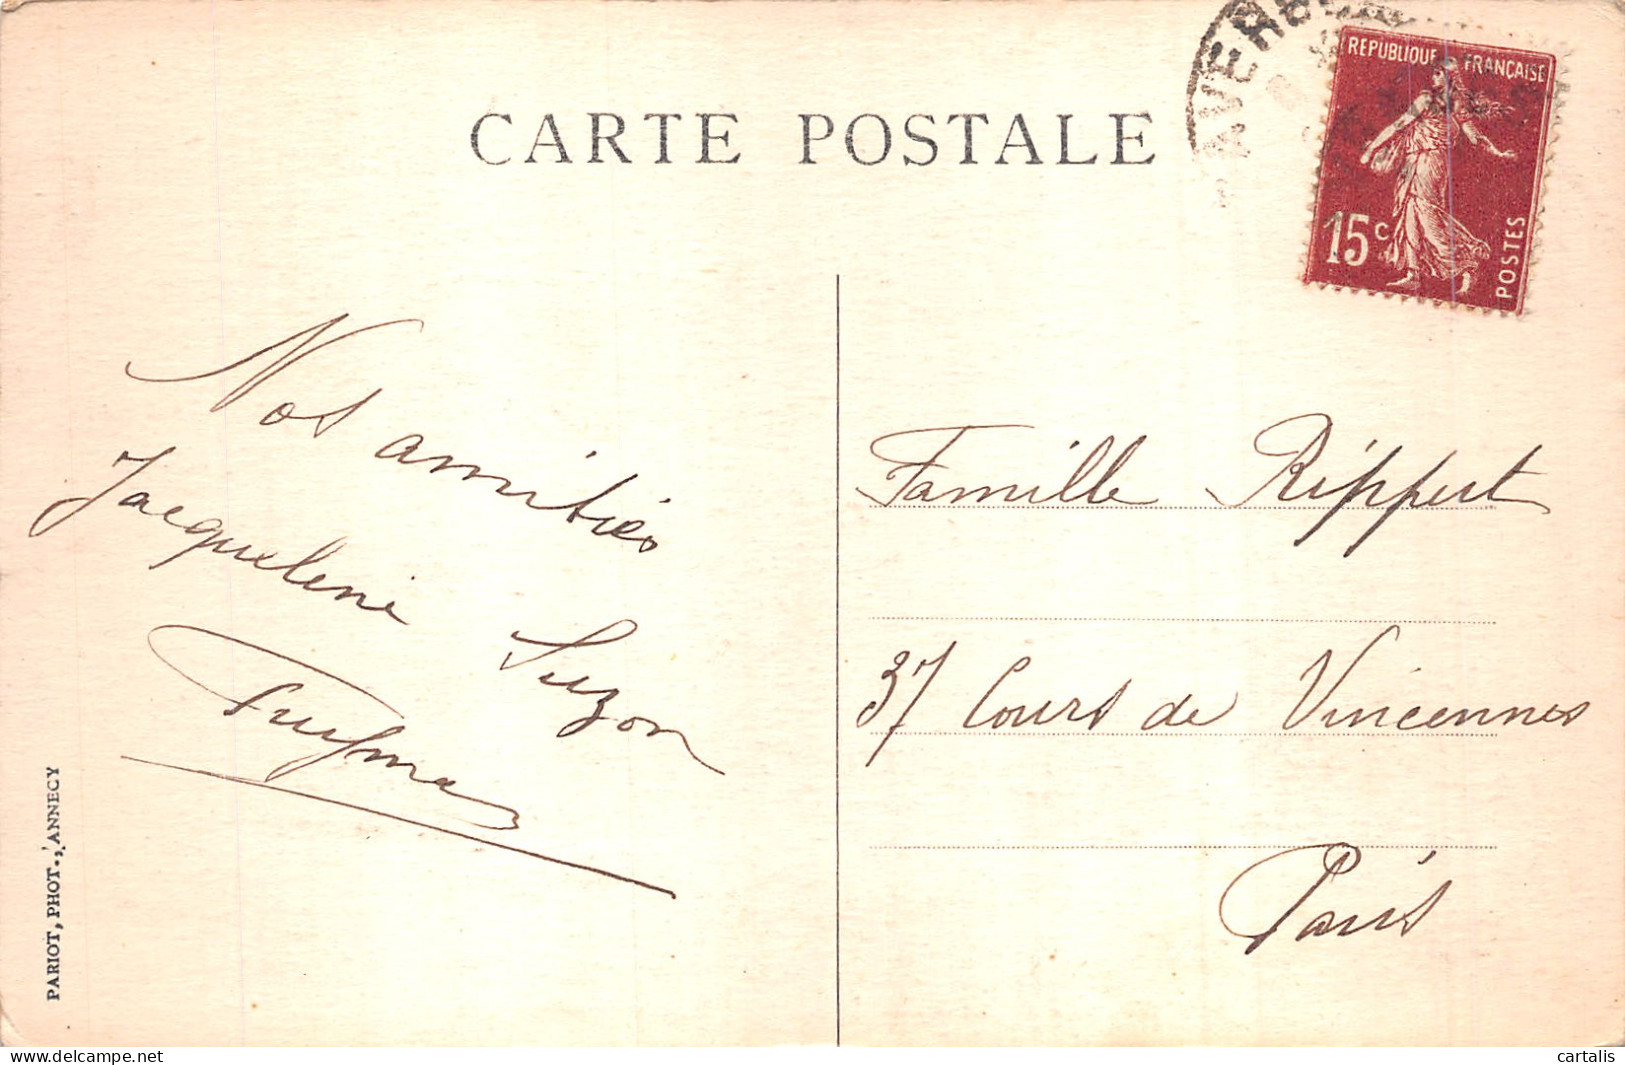 CARTE POSTALE
REPUBLIQUE FRANÇAISE
15c
POSTES
Nos amitiés
Jacqueline Suzon
Famille Rippert
37 Cours de Vincennes
Paris
PARIOT, PHOT., ANNECY
delcampe.net
cartalis